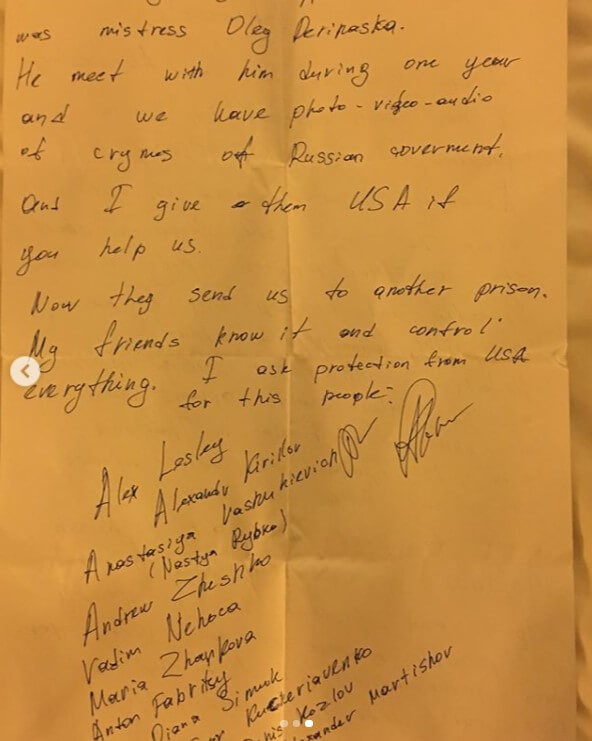 was mistress Oleg Deripaska.
He meet with him during one year
and we have photo-video-audio
of crymes of Russian goverment.
and I give them USA if
you help us.
Now they send us to another prison.
My friends know it and control
everything. I ask protection from USA
for this people:
Alex Lesley
Alexandr Kirillov
Anastasiya Vashukievich
(Nastya Rybka)
Andrew Zheshko
Vadim Nehoca
Maria Zharkova
Anton Fabritsy
Diana Simuk
Kucheriavenko
Kozlov
Alexander Martishov